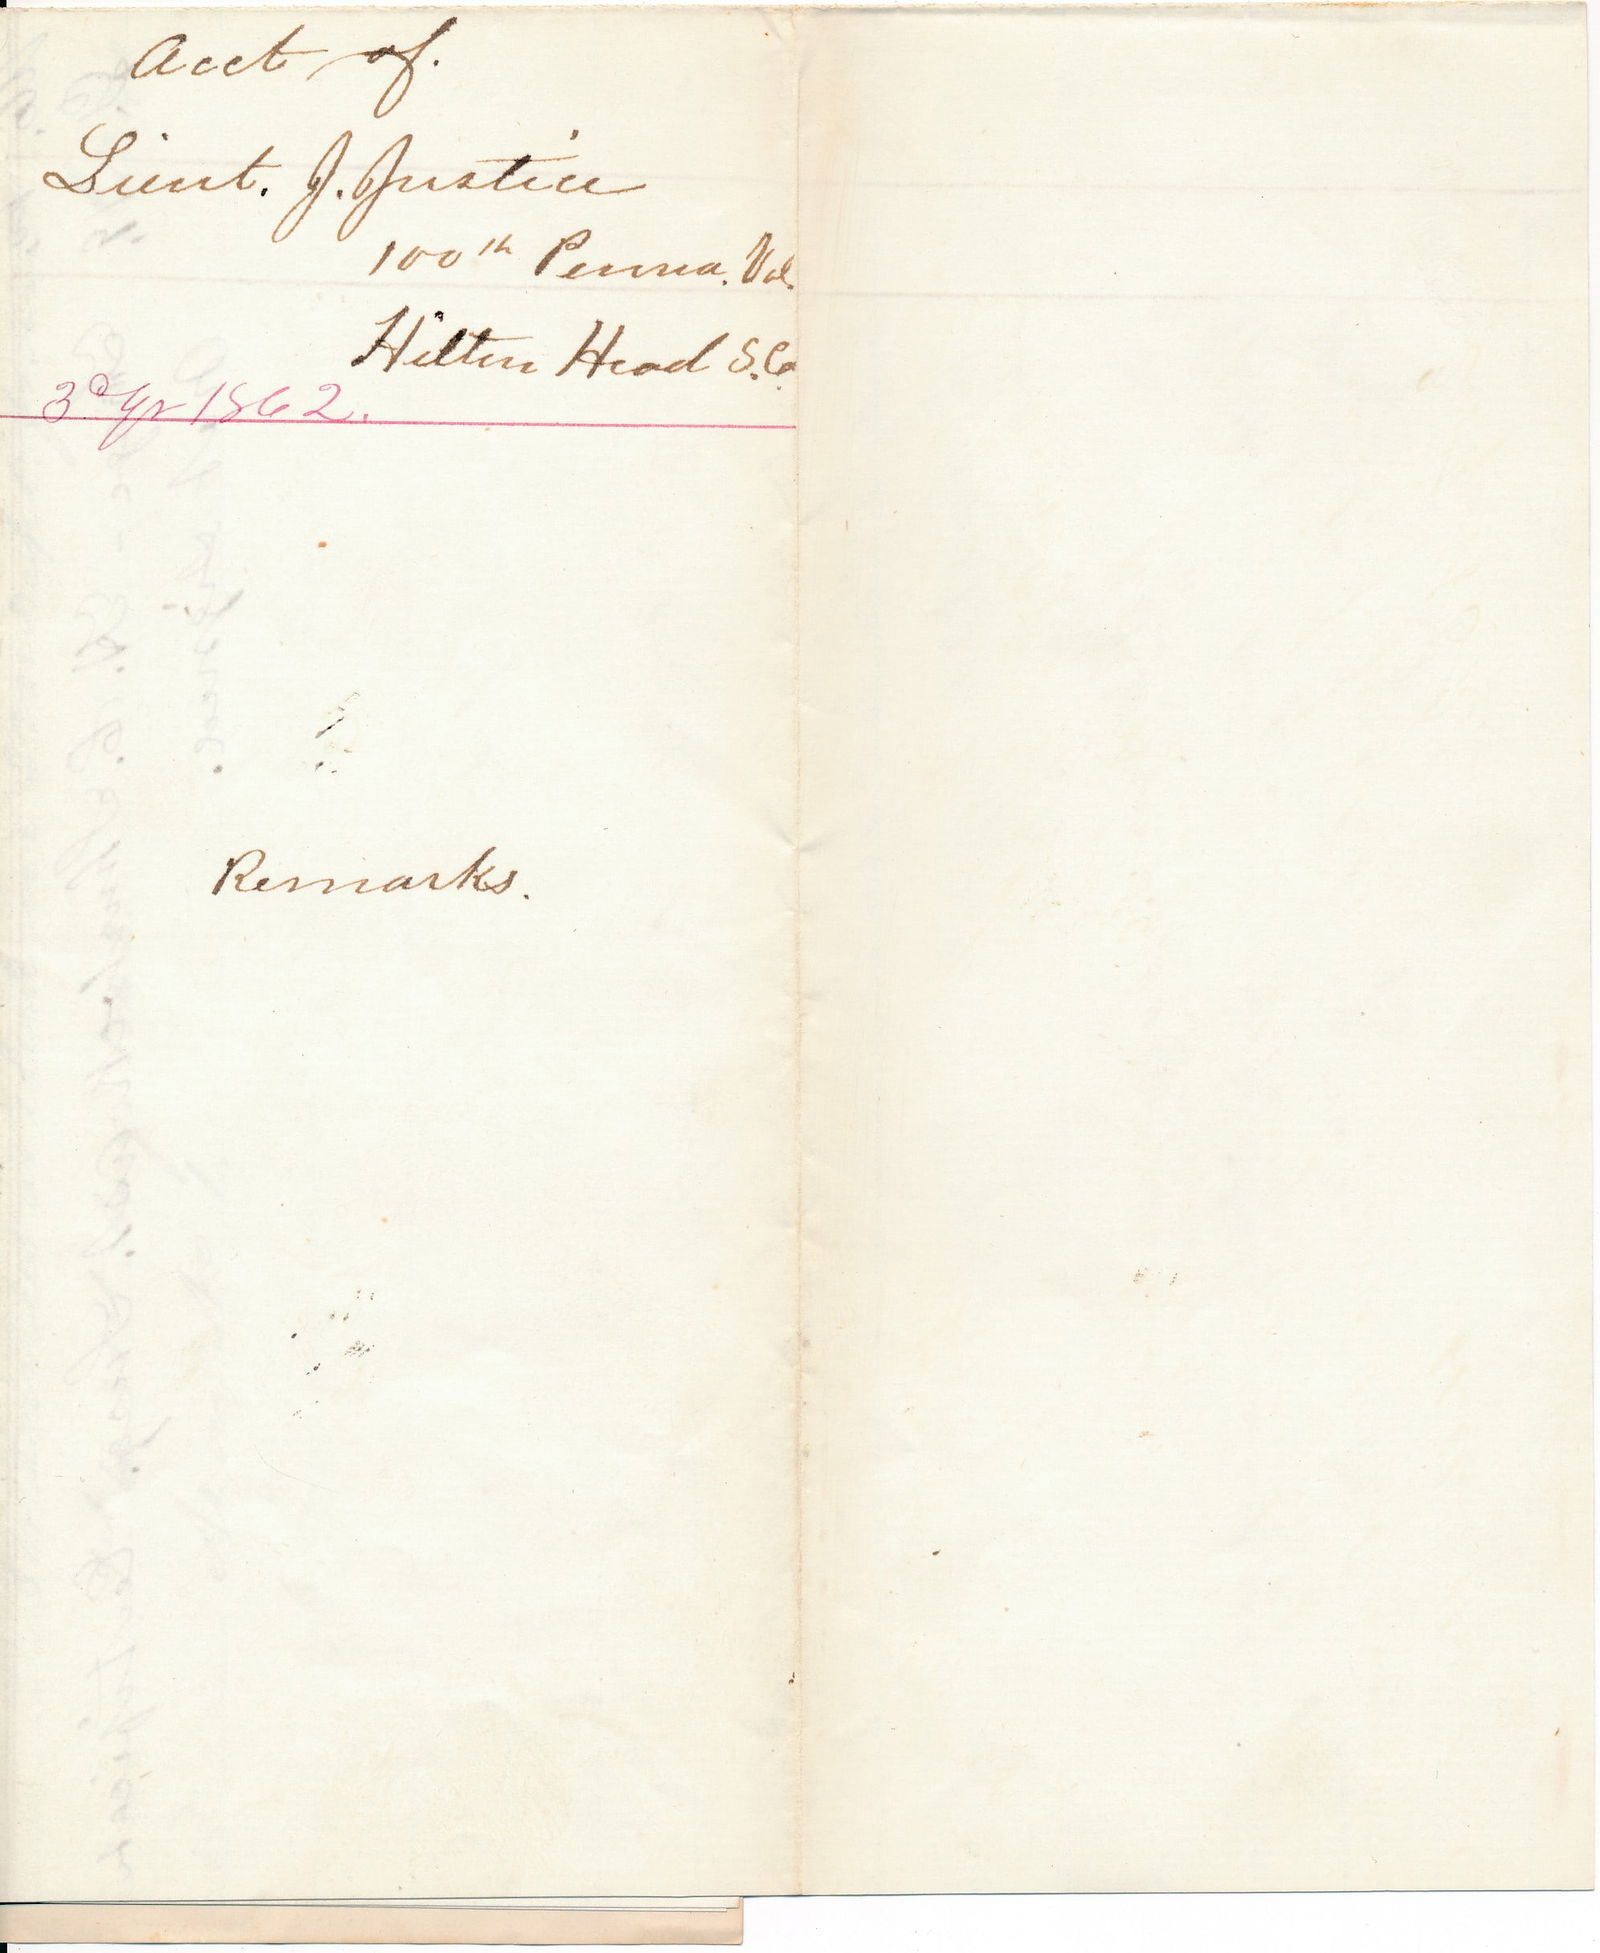 Acct of.
Lieut. J. Justice
100th Penna. Vol.
Hilton Head S.Ca
3d Qr 1862.
Remarks.